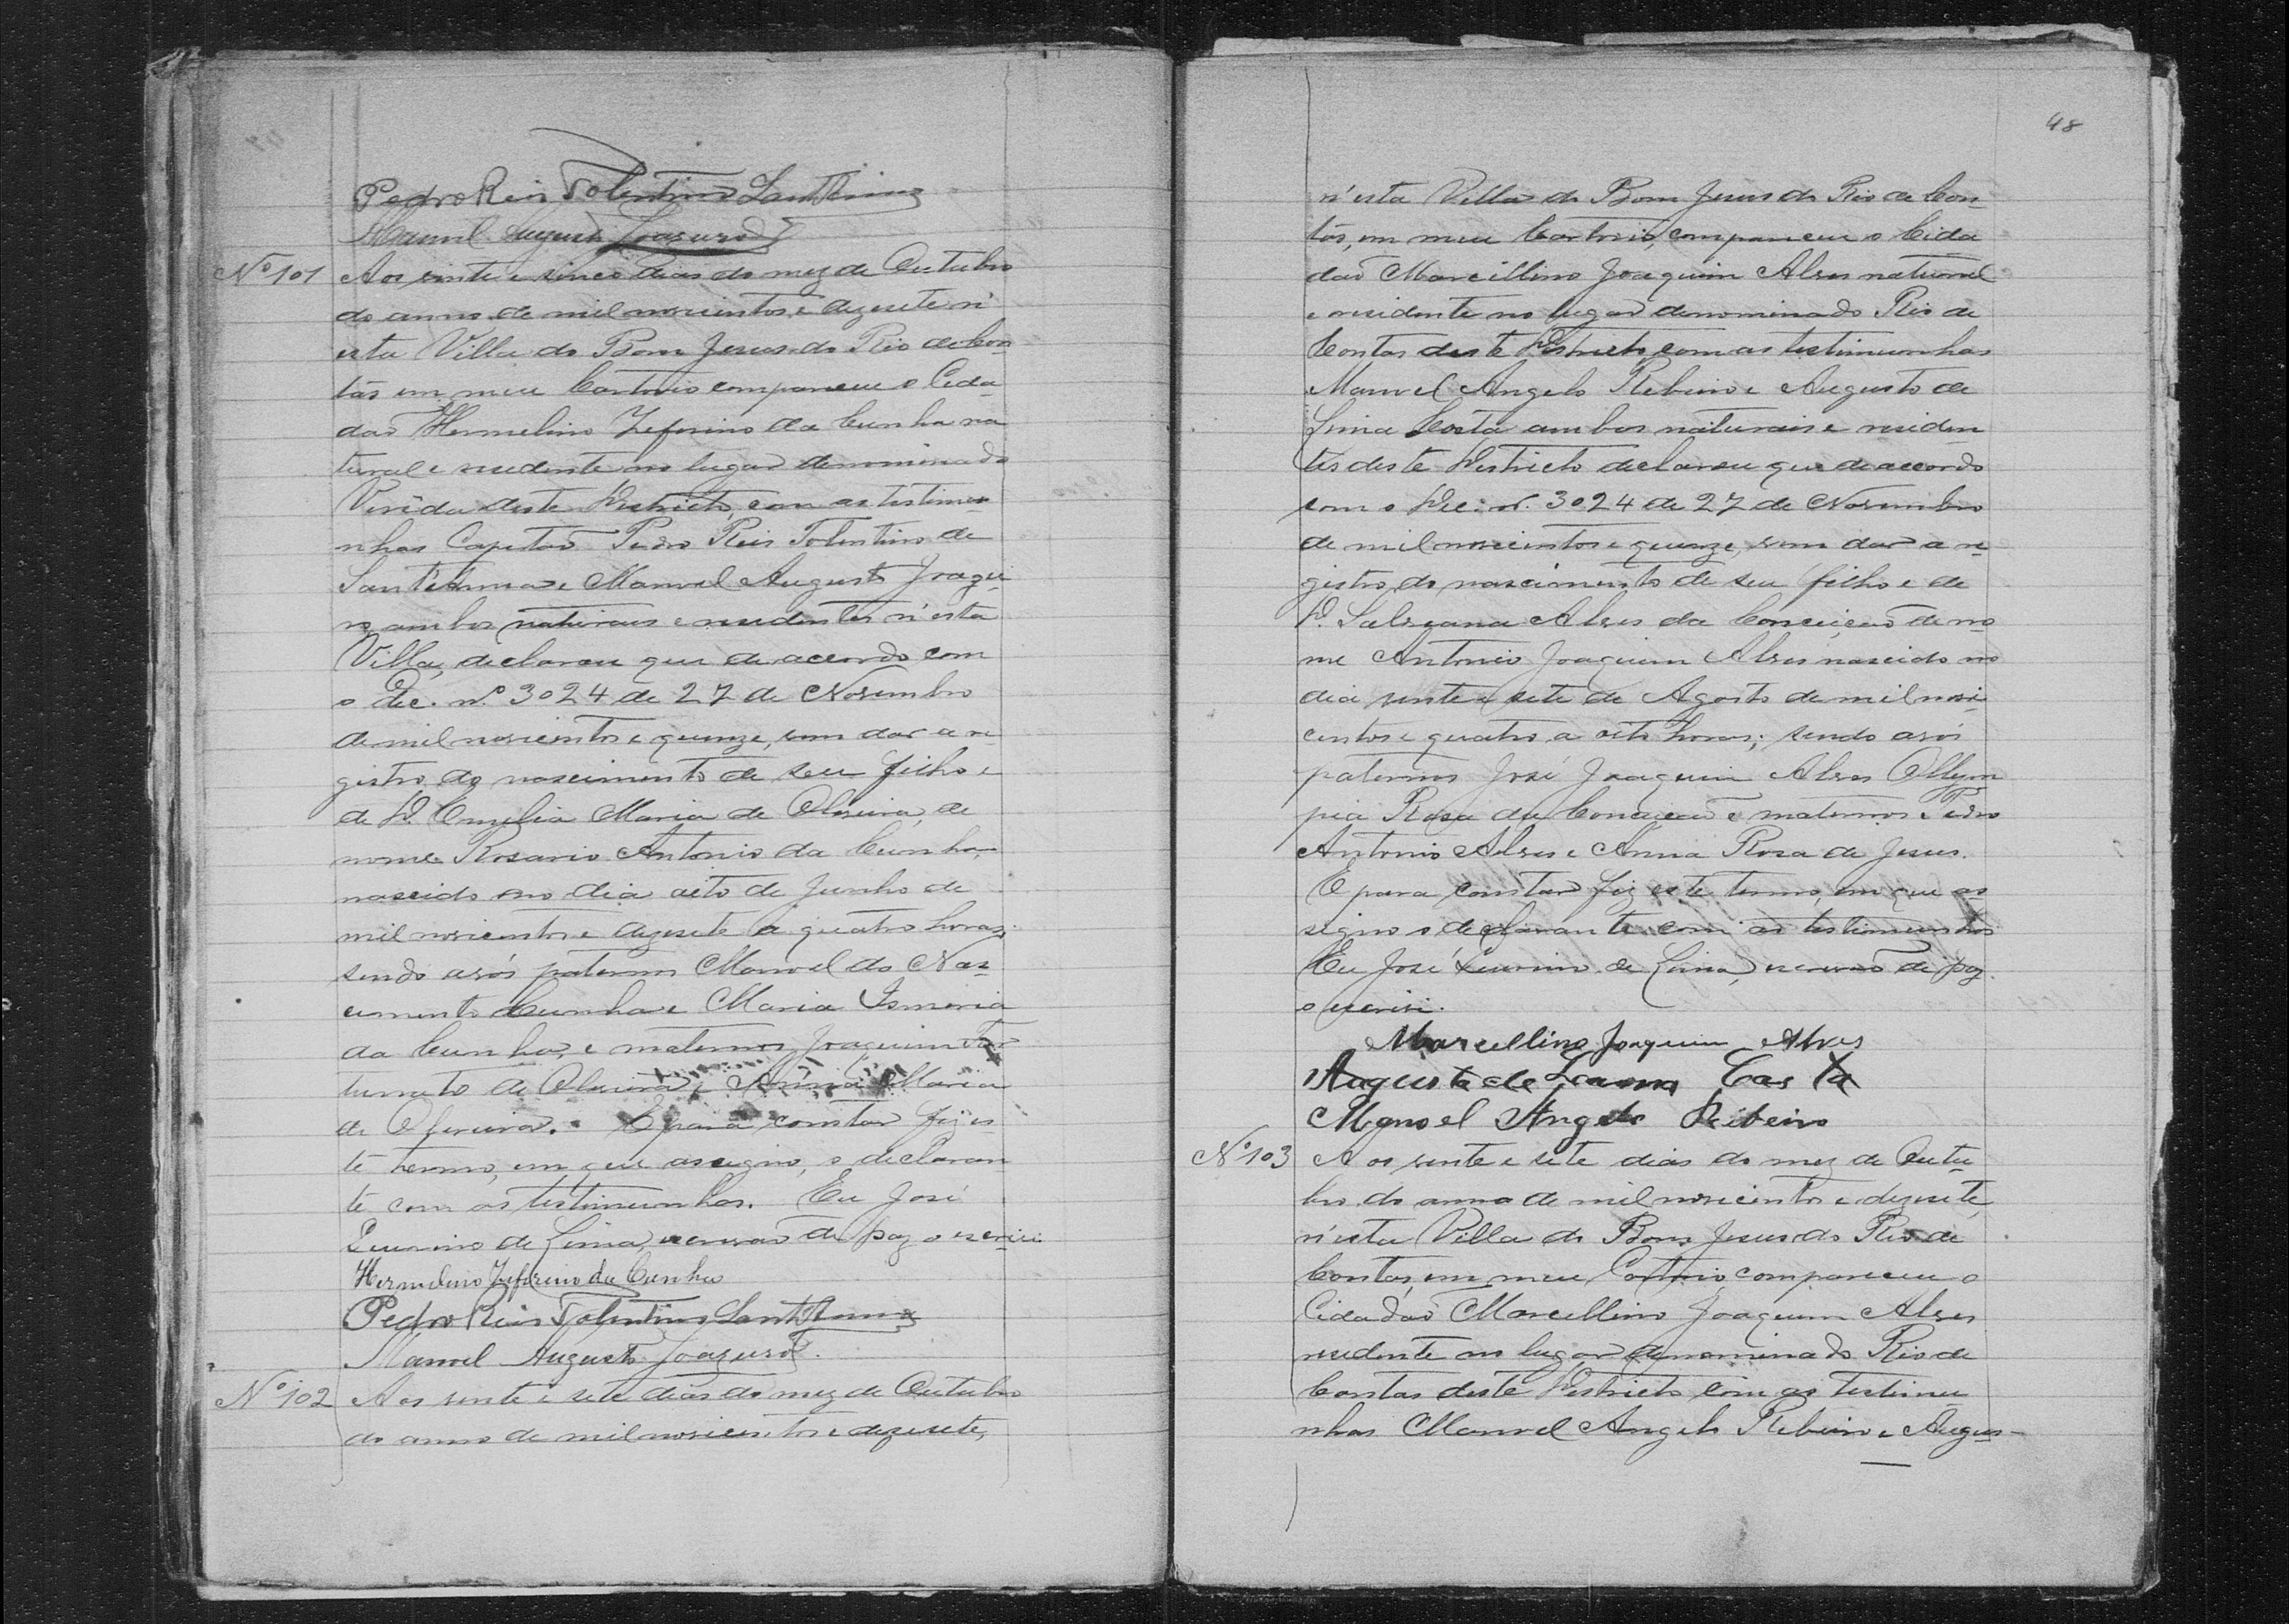 Pedro Reis Tolentino Sant'Anna
Manoel Augusto Joazeiro
Nº 101 Aos vinte e sinco dias do mez de Outubro
do anno de mil novicentos e dezesete n'
esta Villa do Bom Jesus do Rio de Con
tas em meu Cartorio compareceu o Cida
dão Hermelino Zeferino da Cunha na
tural e residente no lugar denominado
deste Destricto, com as testimu
nhas Capitão Pedro Reis Tolentino de
Sant'Anna e Manoel Augusto Joazei
ro ambos naturais e residentes n'esta
Villa, declarou que de accordo com
o Dec. nº 3024 de 27 de Novembro
de mil novicentos e quinze, vem dar a re
gistro do nascimento de seu filho e
de D. Maria de Oliveira, de
nome Rosario Antonio da Cunha,
nascido no dia oito de Junho de
mil novicentos e dezesete á quatro horas;
sendo avós paternos Manoel do Nas
cimento Cunha e Maria Ismeria
da Cunha, e maternos Joaquim For
tunato de Oliveira e Anna Maria
de Oliveira. E para constar fiz es
te termo, em que assigno, o declaran
te com as testimunhas. Eu José
Leuvino de Lima, escrivão de paz o escrivi
Hermelino Zeferino da Cunha
Pedro Reis Tolentino Sant'Anna
Manoel Augusto Joazeiro
Nº 102 Aos vinte e sete dias do mez de Outubro
do anno de mil novicentos e dezesete,
48
n'esta Villa do Bom Jesus do Rio de Con
tas, em meu Cartorio, compareceu o Cida
dão Marcillino Joaquim Alves natural
e residente no lugar denominado Rio de
Contas deste Destricto, com as testimunhas
Manoel Angelo Ribeiro e Augusto de
Lima Costa ambos naturais e residen
tes deste Destricto declarou que de accordo
com o Dec. nº. 3024 de 27 de Novembro
de mil novicentos e quinze, vem dar a re
gistro do nascimento de seu filho e de
D. Alves da Conceição de no
me Antonio Joaquim Alves nascido no
dia vinte e sete de Agosto de mil novi
centos e quatro a oito horas; sendo avós
paternos José Joaquim Alves Ollym
pia Rosa da Conceição e maternos Pedro
Antonio Alves e Anna Rosa de Jesus.
E para constar fiz este termo, em que as
signo o declarante com as testimunhas
Eu José Leuvino de Lima, escrivão de paz
o escrivi.
Marcellino Joaquim Alves
Augusto de Lima Costa
Manoel Angelo Ribeiro
Nº 103 Aos vinte e sete dias do mez de Outu
bro do anno de mil novicentos e dezesete,
n'esta Villa do Bom Jesus do Rio de
Contas, em meu Cartorio, compareceu o
Cidadão Marcellino Joaquim Alves
residente no lugar denominado Rio de
Contas deste Destricto com as testimu
nhas Manoel Angelo Ribeiro e Augus-